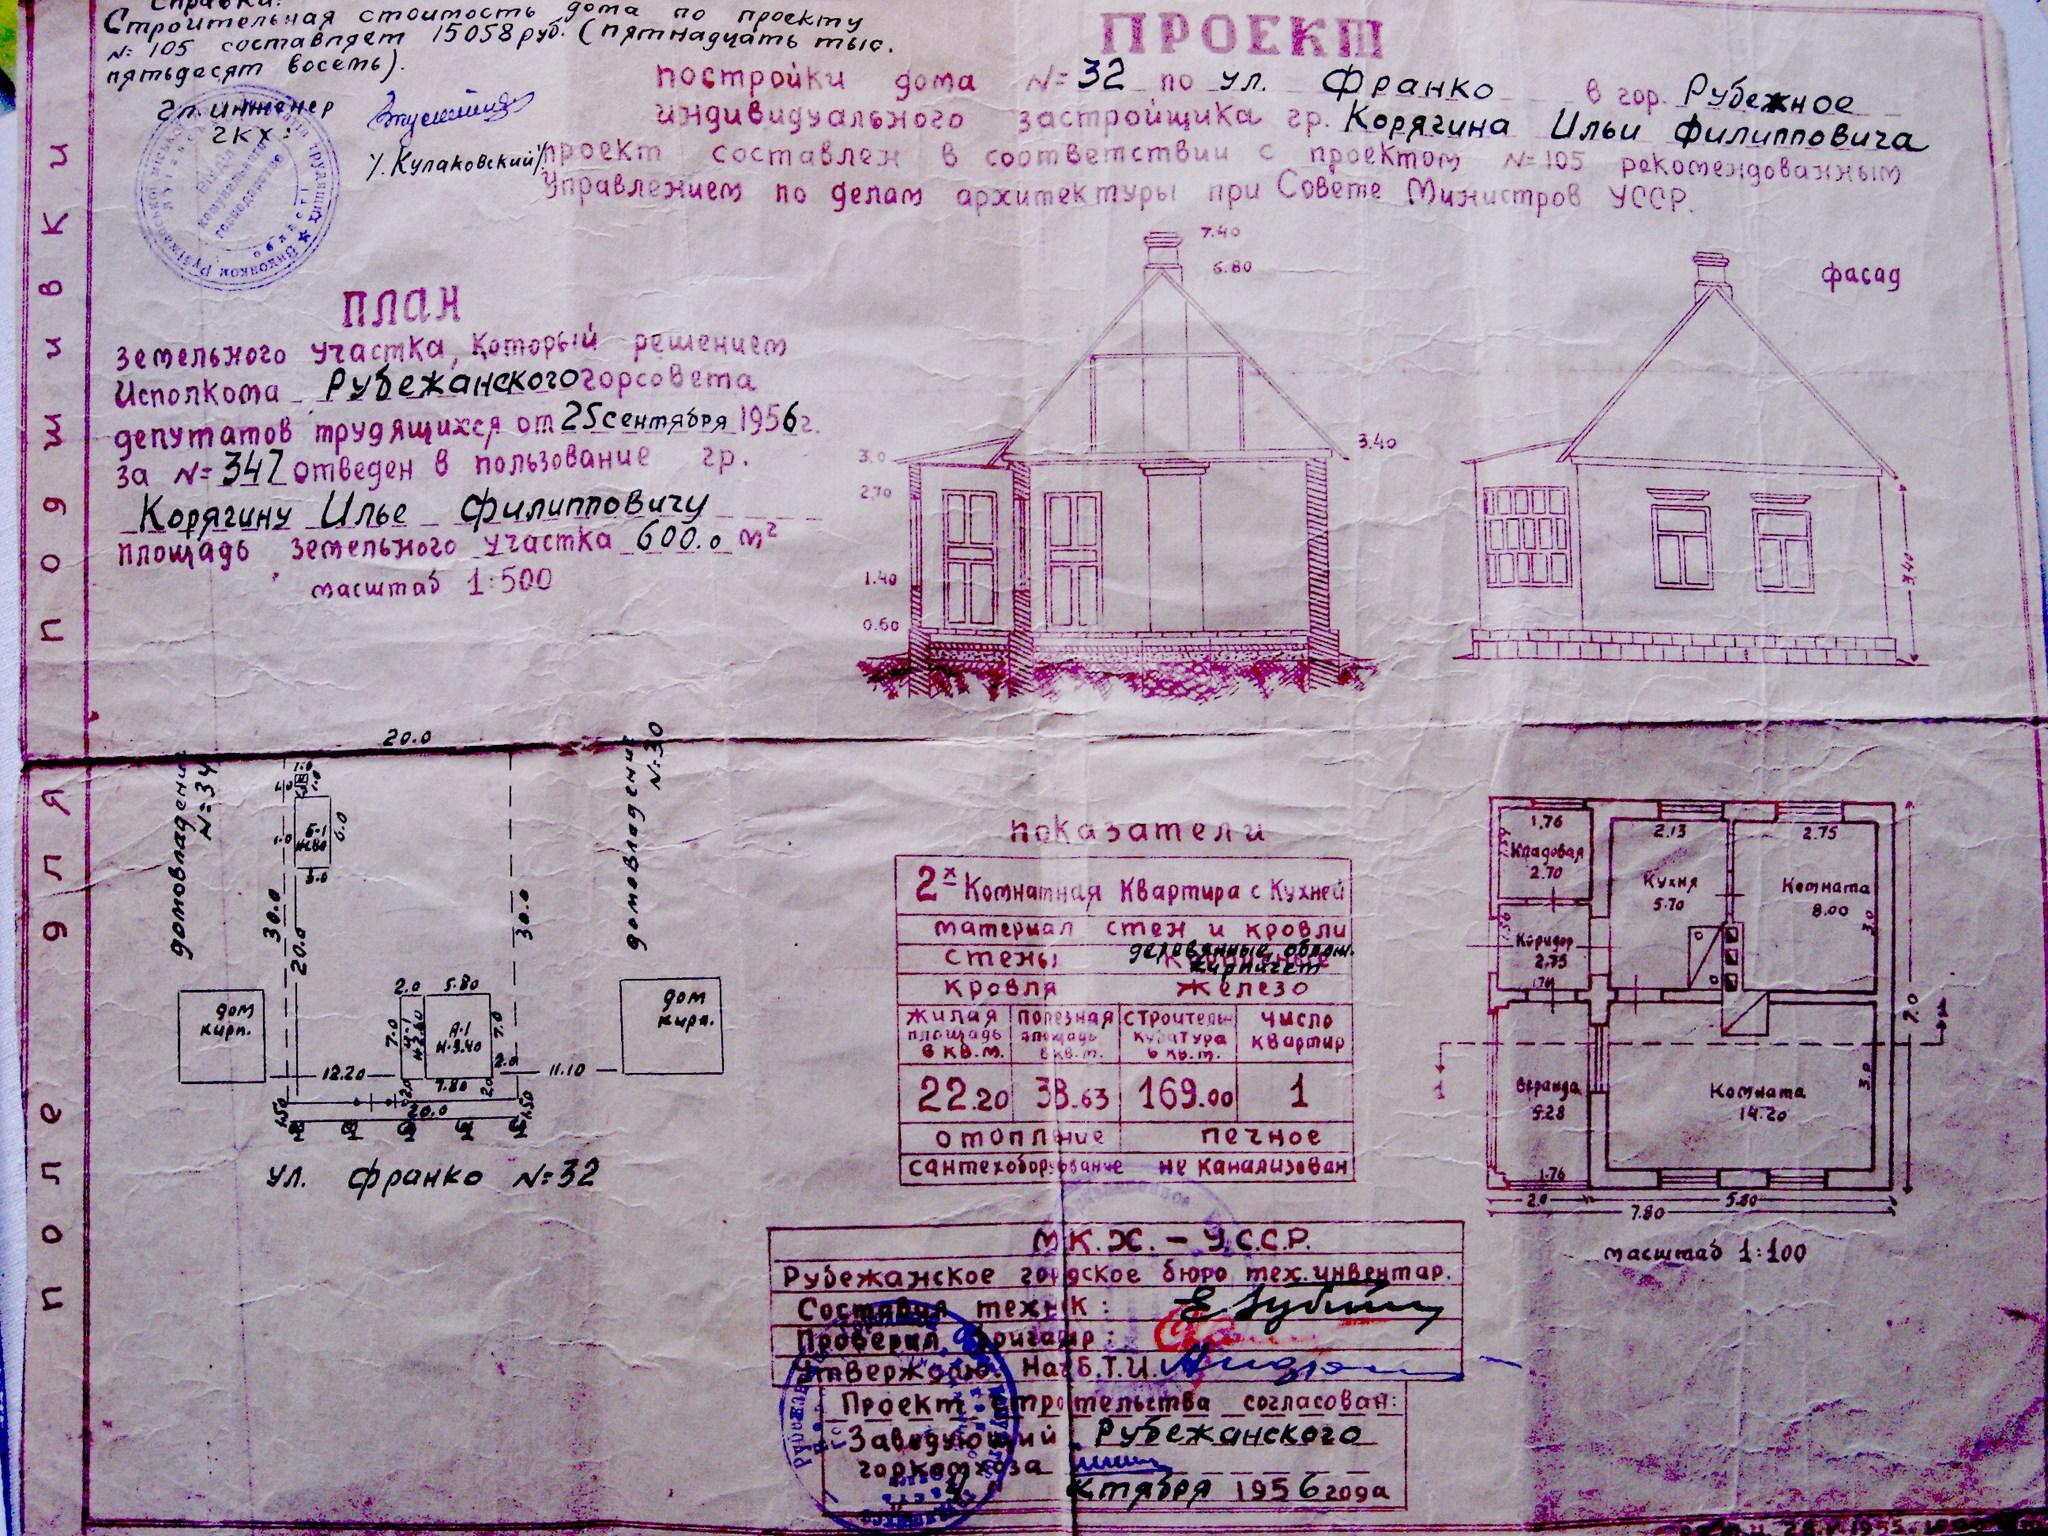 Справка:
Строительная стоимость дома по проекту
№ 105 составляет 15058 руб. (пятнадцать тыс.
пятьдесят восемь).
гл. инженер
гкх:
/. Кулаковский/
ПРОЕКТ
постройки дома №=32 по ул. Франко в гор. Рубежное
индивидуального застройщика гр. Корягина Ильи Филипповича
проект составлен в соответствии с проектом №=105 рекомендованным
Управлением по делам архитектуры при Совете Министров УССР.
ПЛАН
земельного участка, который решением
Исполкома Рубежанского горсовета
депутатов трудящихся от 25 сентября 1956 г.
за №=347 отведен в пользование гр.
Корягину Илье Филипповичу
площадь земельного участка 600.0 м²
масштаб 1:500
7.40
6.80
3.40
3.0
2.70
1.40
0.60
фасад
3.40
поле для подшивки
20.0
домовладение №=34
домовладение №=30
1.0
1.0
1.0
Б-1
6.0
1.0
3.0
30.0
20.0
30.0
2.0
5.80
7.0
А-1
Н-3.40
7.0
2.0
дом
кирп.
дом
кирп.
12.20
11.10
7.80
2.0
2.0
1.50
20.0
1.50
ул. Франко №=32
показатели
2х комнатная квартира с кухней
материал стен и кровли
стены деревянные, облож. кирпичем
кровля железо
жилая площадь в кв.м.
полезная площадь в кв.м.
строительн кубатура в кв.м.
число квартир
22.20 38.63 169.00 1
отопление печное
сантехоборудование не канализован
1.76
Кладовая
2.70
2.13
Кухня
5.70
2.75
Комната
8.00
3.0
Коридор
2.75
1.56
1.76
Веранда
5.28
1.76
Комната
14.20
3.0
7.0
1
1
2.0
5.80
7.80
масштаб 1:100
М.К.Х. – У.С.С.Р.
Рубежанское городское бюро тех.инвентар.
Составил техник:
Проверил, бригадир:
Утверждаю: Нач Б.Т.И.
Проект строительства согласован:
Заведующий Рубежанского
горкомхоза
октября 1956 года